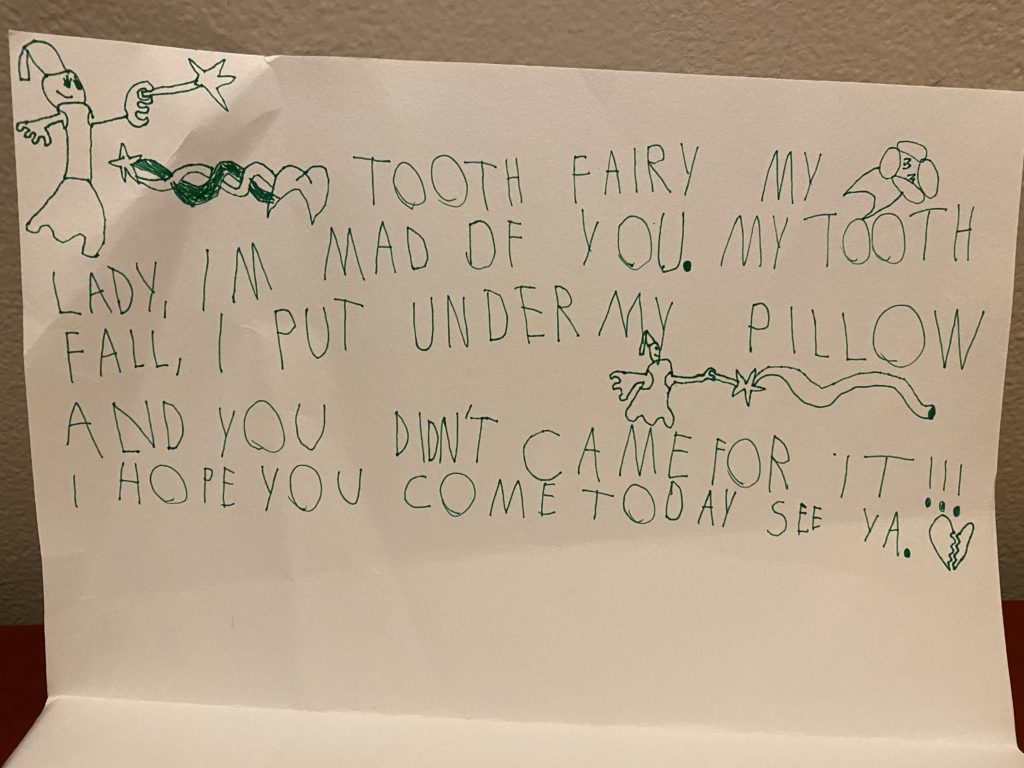 TOOTH FAIRY MY
LADY, IM MAD OF YOU. MY TOOTH
FALL, I PUT UNDER MY PILLOW
AND YOU DIDN'T CAME FOR IT!!!
I HOPE YOU COME TODAY SEE YA.